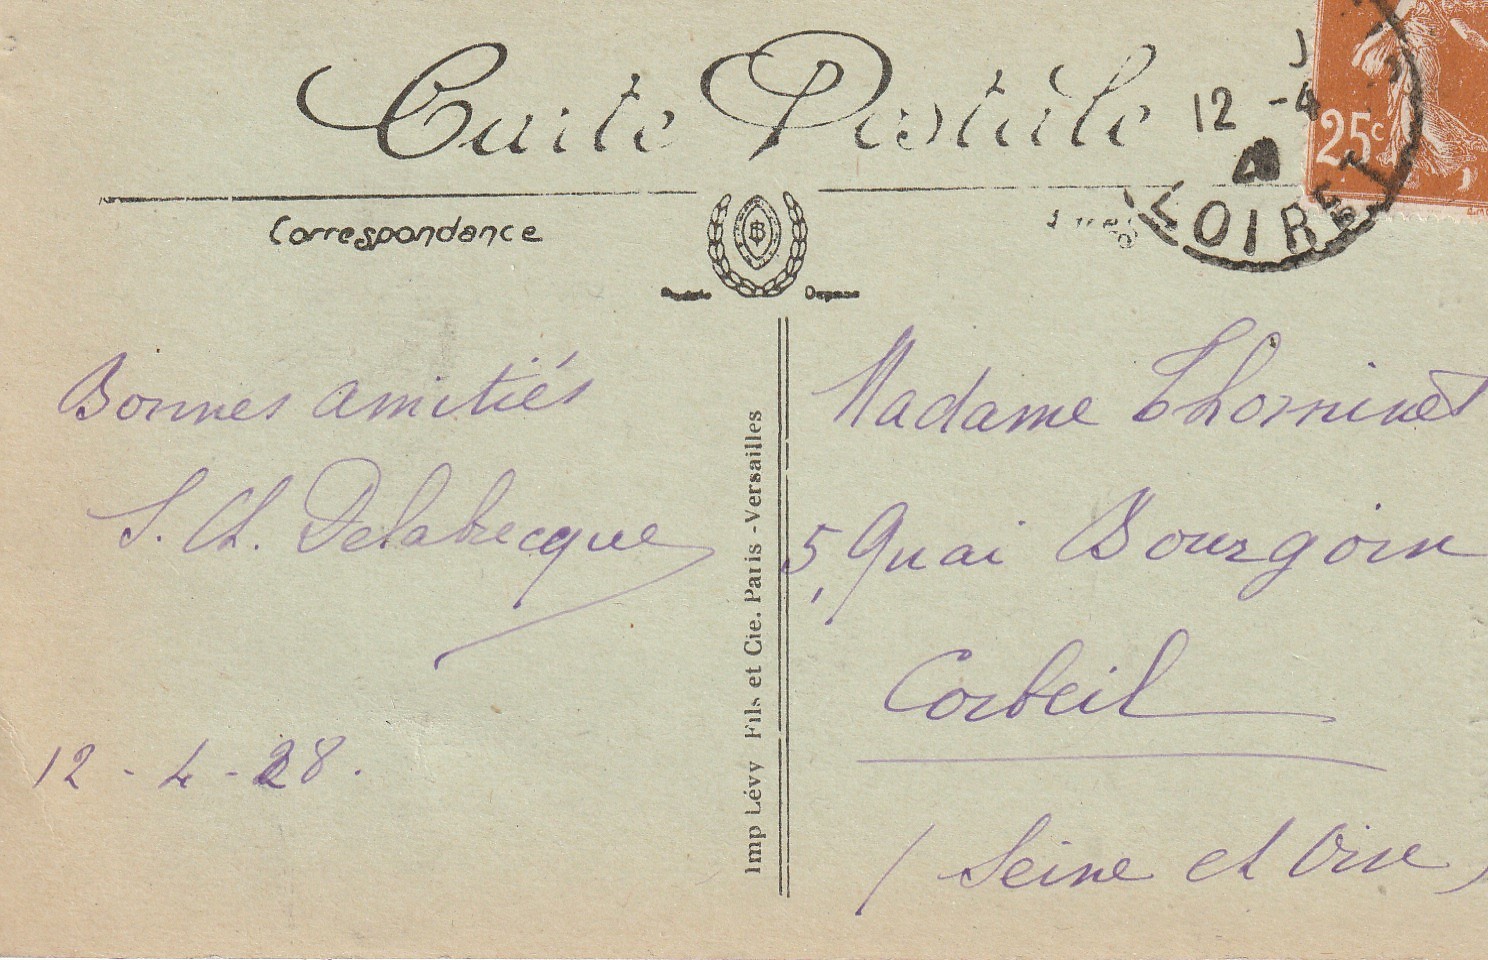 Carte Postale
12 -4
28
25c
LOIRET
Correspondance
Bonnes amitiés
S. Ch. Delabecque
12 - 4 - 28.
Imp Lévy Fils et Cie. Paris - Versailles
Madame Thominet
5, Quai Bourgoin
Corbeil
(Seine et Oise)